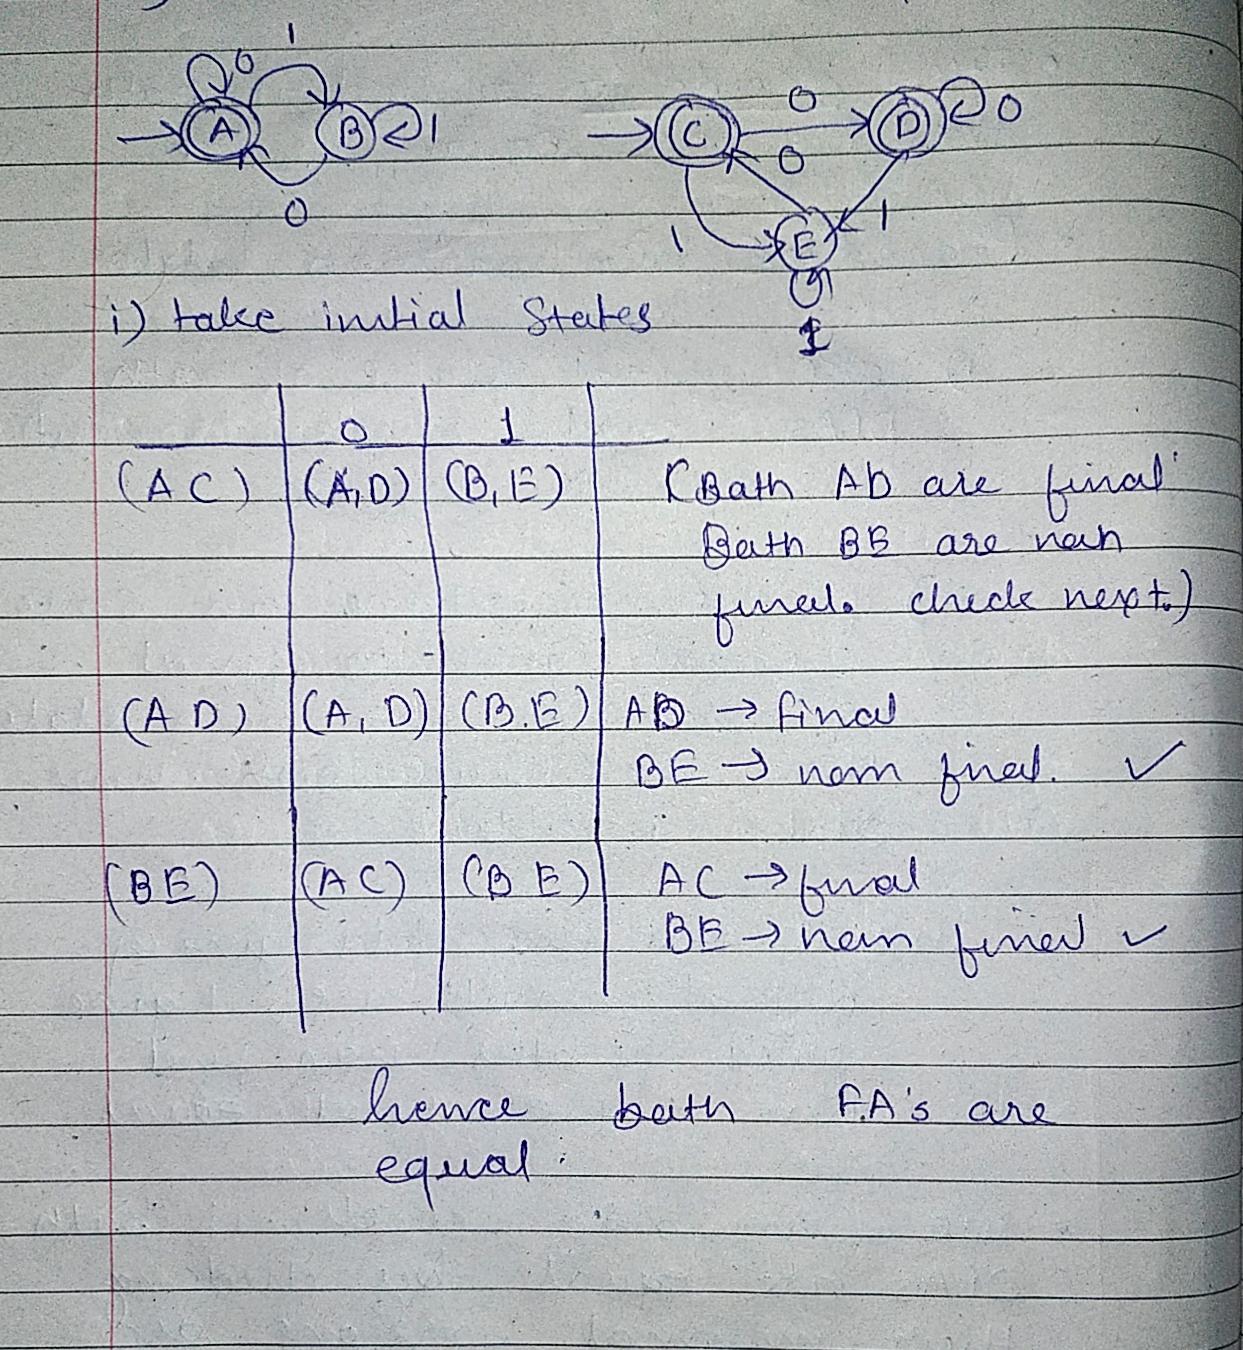 1
0
A
B
1
0
C
0
D
0
0
1
E
1
1
i) take initial States
0 1
(A C) (A,D) (B,E) (Both AD are final
Both BE are non
final. check next.)
(A D) (A, D) (B.E) AD → final
BE → nom final. ✓
(BE) (AC) (B E) AC → final
BE → non final ✓
hence both F.A's are
equal.